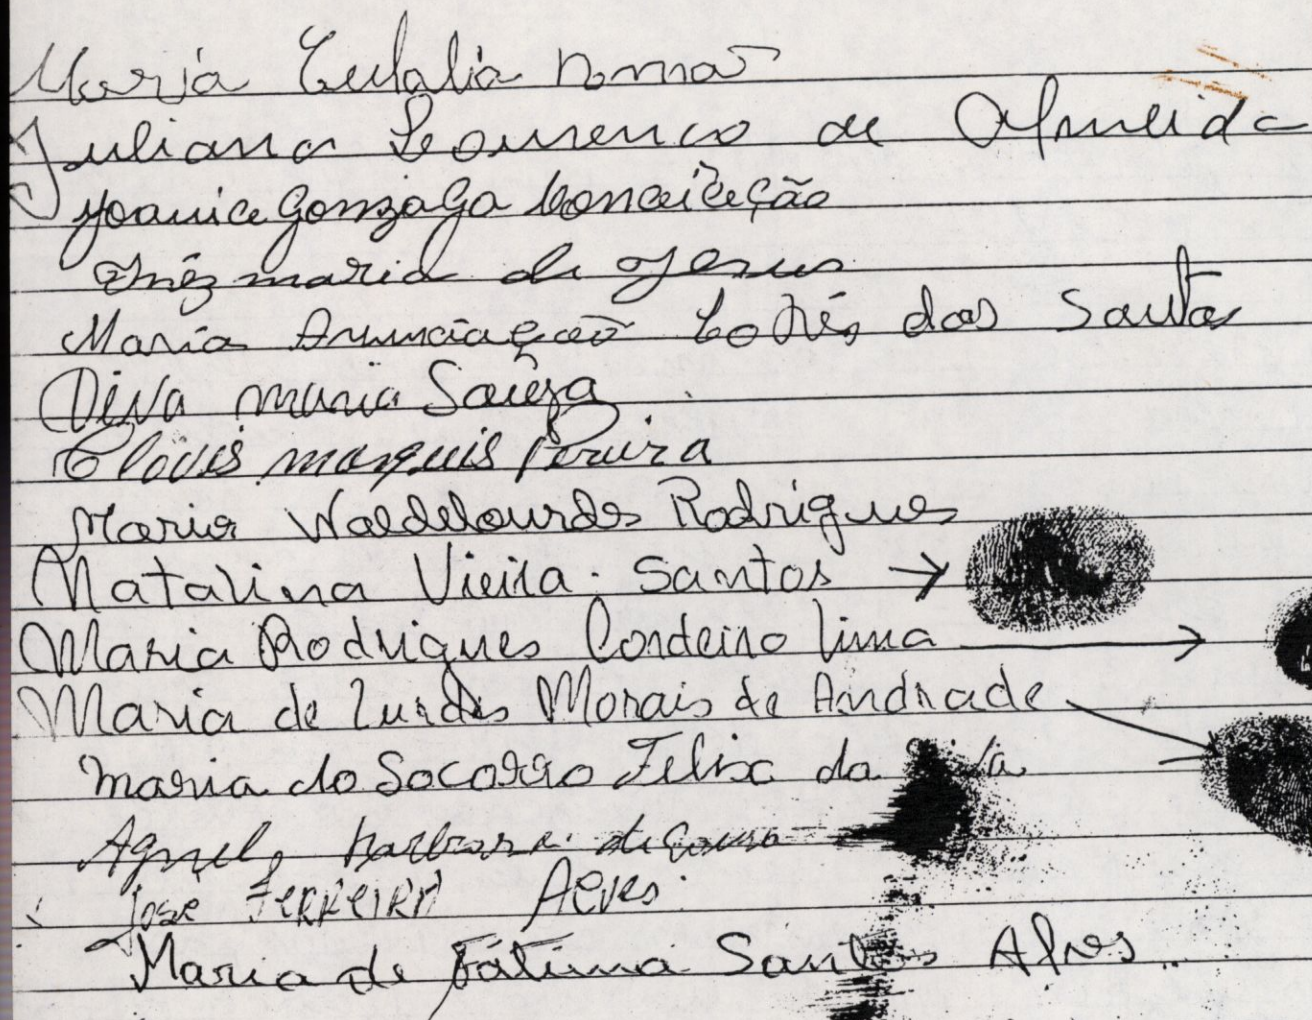 Maria Eulalia
Juliana Lourenco de Almeida
Joanice Gonzaga Conceiceção
Inêz maria de Jesus
Maria Anunciação Cotrés dos Santos
Diva maria Souza
Clóvis marquis Pereira
Maria Waldelourdes Rodrigues
Natalina Vieira. Santos
Maria Rodrigues Cordeiro lima
Maria de Lurdes Morais de Andrade
maria do Socorro Felix da
Agnelo barbosa de Sousa
Jose FERREIRA Alves
Maria de Fátima Santos Alves